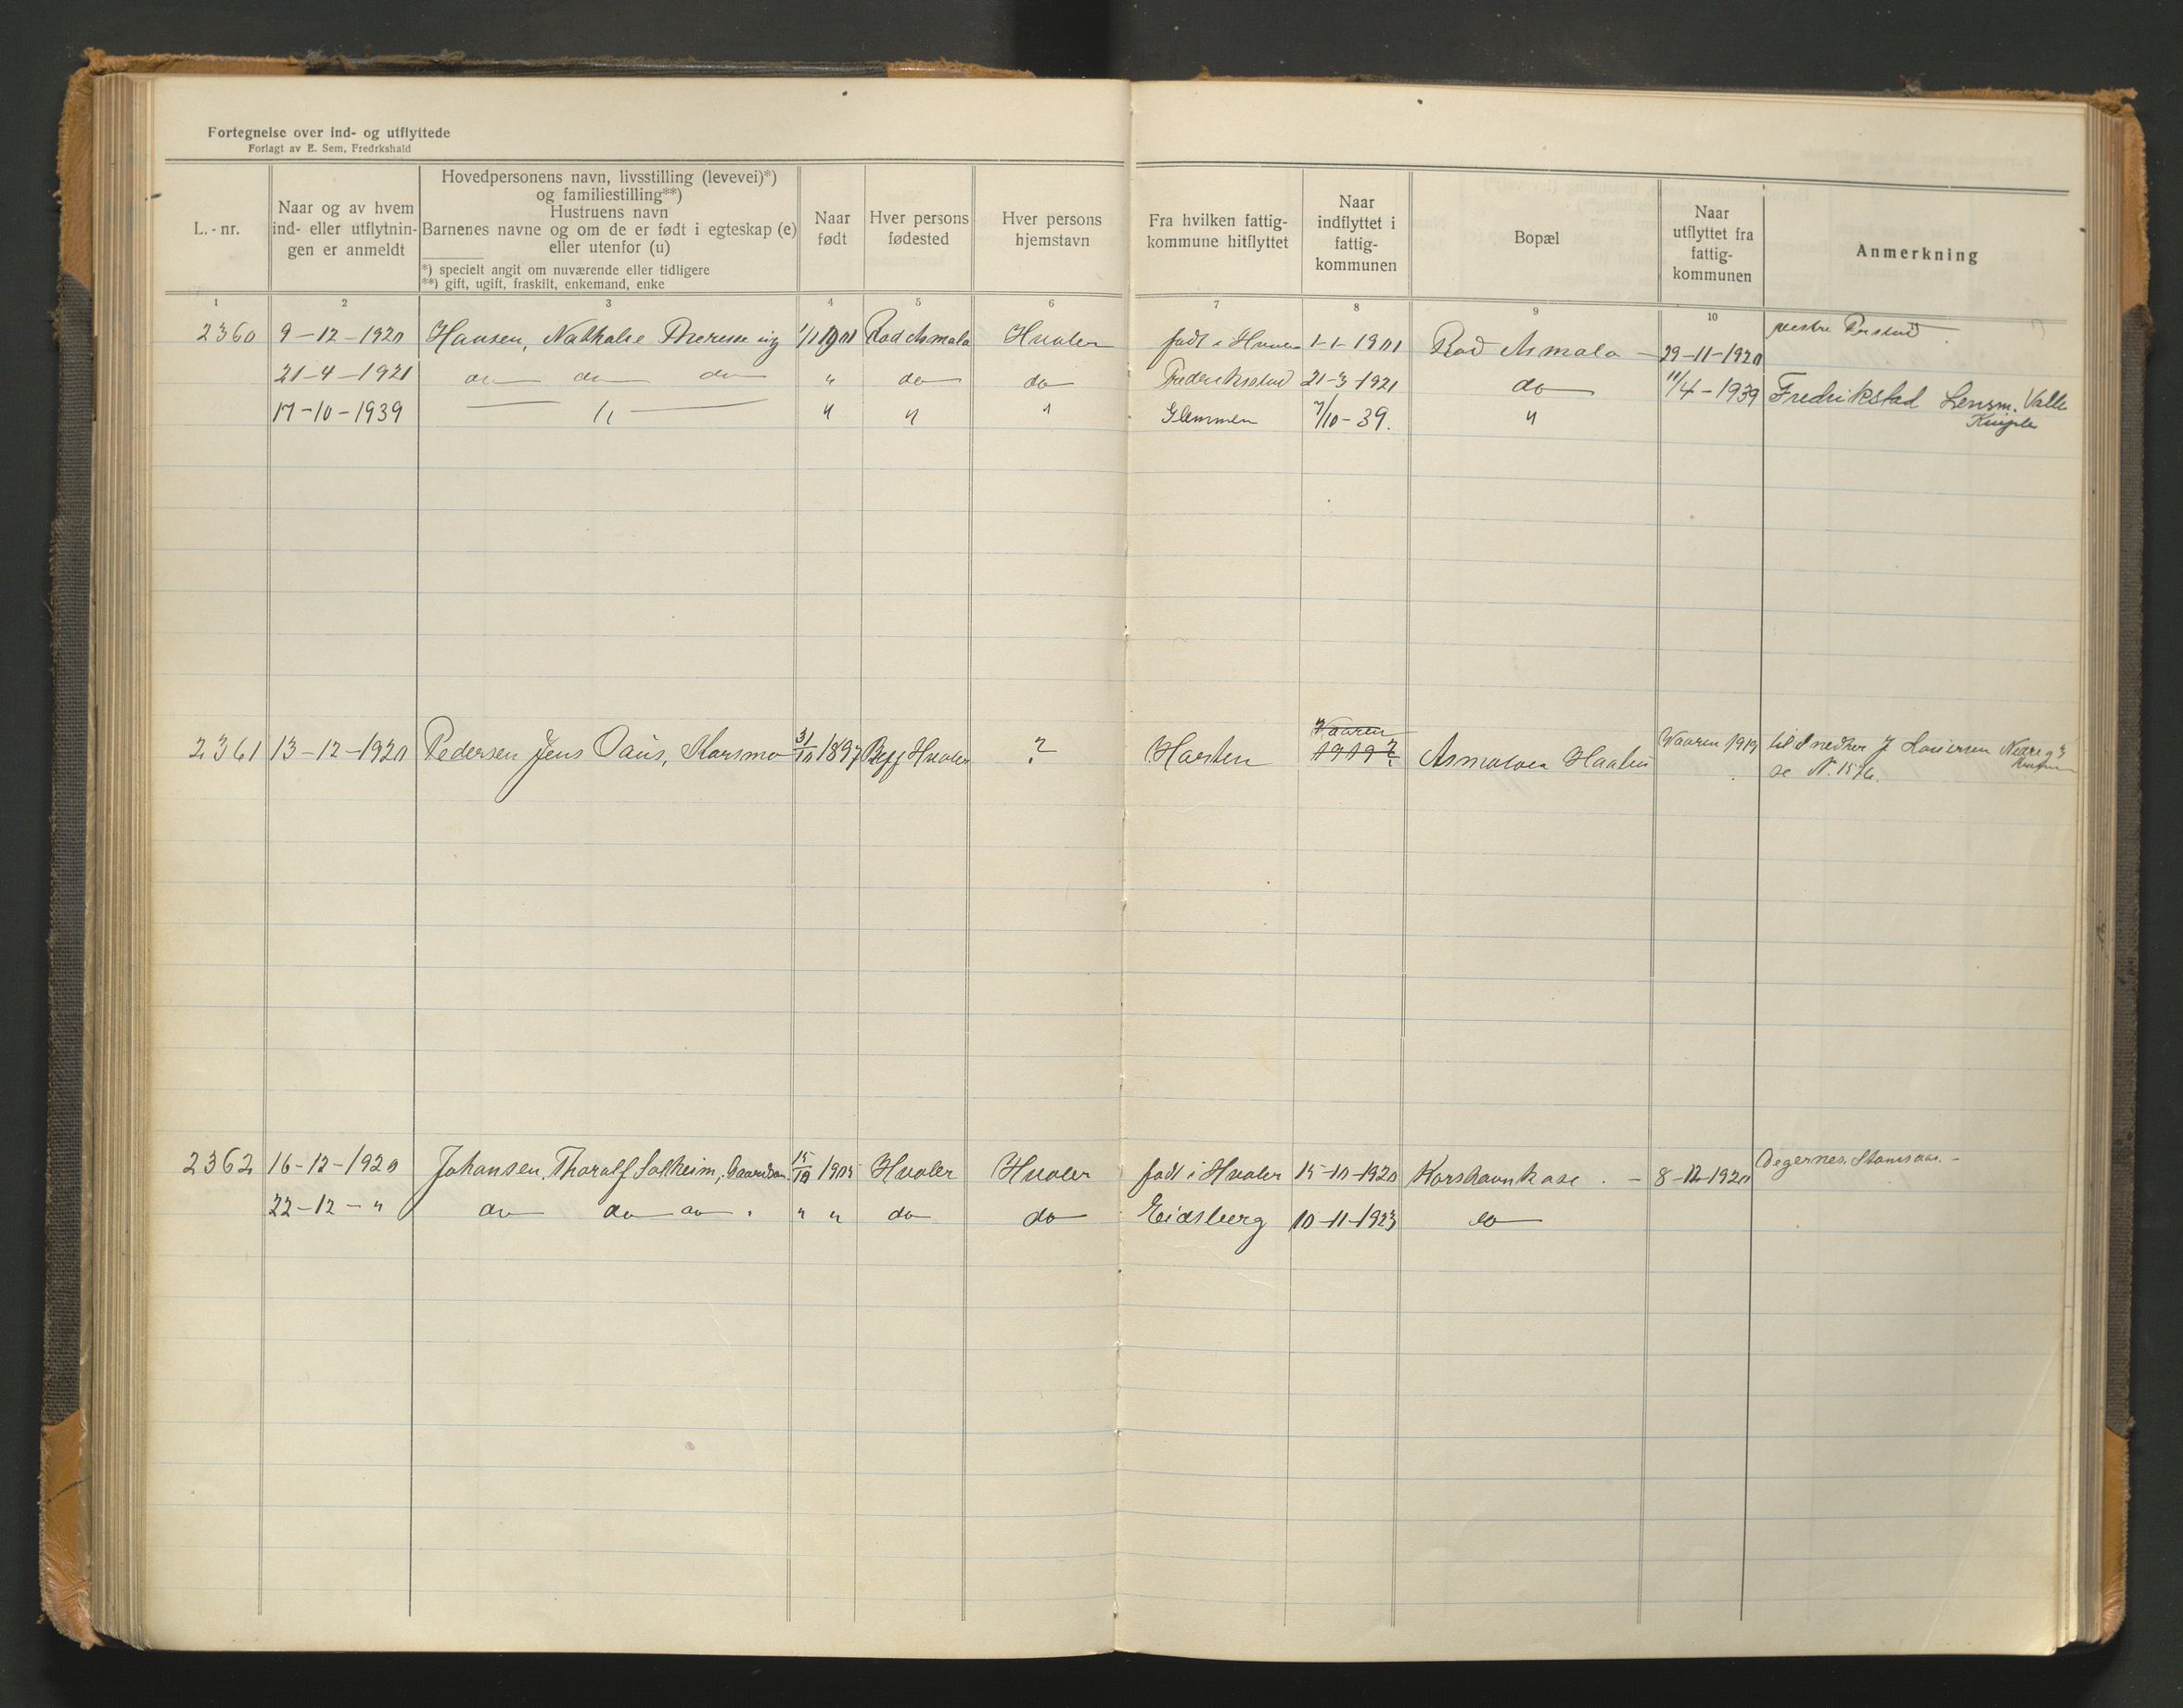 Fortegnelse over ind- og utflyttede
Forlagt av E. Sem, Fredrkshald
L.-nr.
Naar og av hvem ind- eller utflytnin- gen er anmeldt
Hovedpersonens navn, livsstilling (levevei)*)
og familiestilling**)
Hustruens navn
Barnenes navne og om de er født i egteskap (e)
eller utenfor (u)
*) specielt angit om nuværende eller tidligere
**) gift, ugift, fraskilt, enkemand, enke
Naar født
Hver persons fødested
Hver persons hjemstavn
Fra hvilken fattig- kommune hitflyttet
Naar indflyttet i fattig- kommunen
Bopæl
Naar utflyttet fra fattig- kommunen
Anmerkning
1 2 3 4 5 6 7 8 9 10
2360 9-12-1920 Hansen, Nathalie Therese ug 1/1 1901 Rød Asmalø Hvaler født i Hvaler 1-1-1901 Rød Asmalø — 29-11-1920
21-4-1921 do do do " do do Frederikstad 21-3-1921 do 11/4-1939 Fredrikstad Lensm. Valle
17-10-1939 — " — " " " Glemmen 7/10-39. "
2361 13-12-1920 Pedersen Jens Daus, 31/10 1897 Hvaler ? Vaaren 1919 ? Asmaløen Vaaren 1919 til J
se N. 1576.
2362 16-12-1920 Johansen, Thoralf Solheim, 15/10 1905 Hvaler Hvaler født i Hvaler 15-10-1920 Korshavn Kase . - 8-12-1920 Degernes.
22-12-" do do do " " " do do Eidsberg 10-11-1923 do